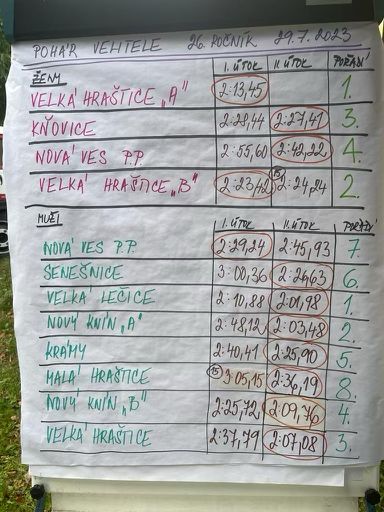 POHÁR VELITELE 26. ROČNÍK 29.7.2023
ŽENY I. ÚTOK II. ÚTOK POŘADÍ
VELKÁ HRAŠTICE „A" 2:13,45 1.
KŇOVICE 2:28,44 2:27,41 3.
NOVÁ VES P.P. 2:55,60 2:42,22 4.
VELKÁ HRAŠTICE „B" 2:23,42 15 2:24,24 2.
MUŽI I. ÚTOK II. ÚTOK POŘADÍ
NOVÁ VES P.P. 2:29,24 2:45,93 7.
SENEŠNICE 3:00,36 2:26,63 6.
VELKÁ LEČICE 2:10,88 2:01,98 1.
NOVÝ KNÍN „A" 2:48,12 2:03,48 2.
KRÁMY 2:40,41 2:25,90 5.
MALÁ HRAŠTICE 15 3:05,15 2:36,19 8.
NOVÝ KNÍN „B" 2:25,72 2:09,76 4.
VELKÁ HRAŠTICE 2:37,79 2:07,08 3.